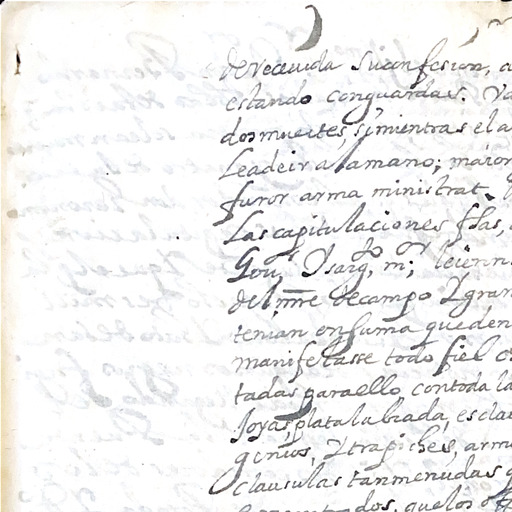 de receuida su confesion, a
estando con guardas. Va
dos muertes, si mientras el a
Leadeir a la mano; maior
furor arma ministrat.
Las capitulaciones fhas,
Gou.r Y sarg.to m.or; leienn
del mre decampo Y gran
tenian en suma que den
manifestasse todo fiel
tadas para ello, con toda la
Joyas, plata labrada, esclau
genios, Y trapiches, arm
clausulas tan menudas q
dos, que los